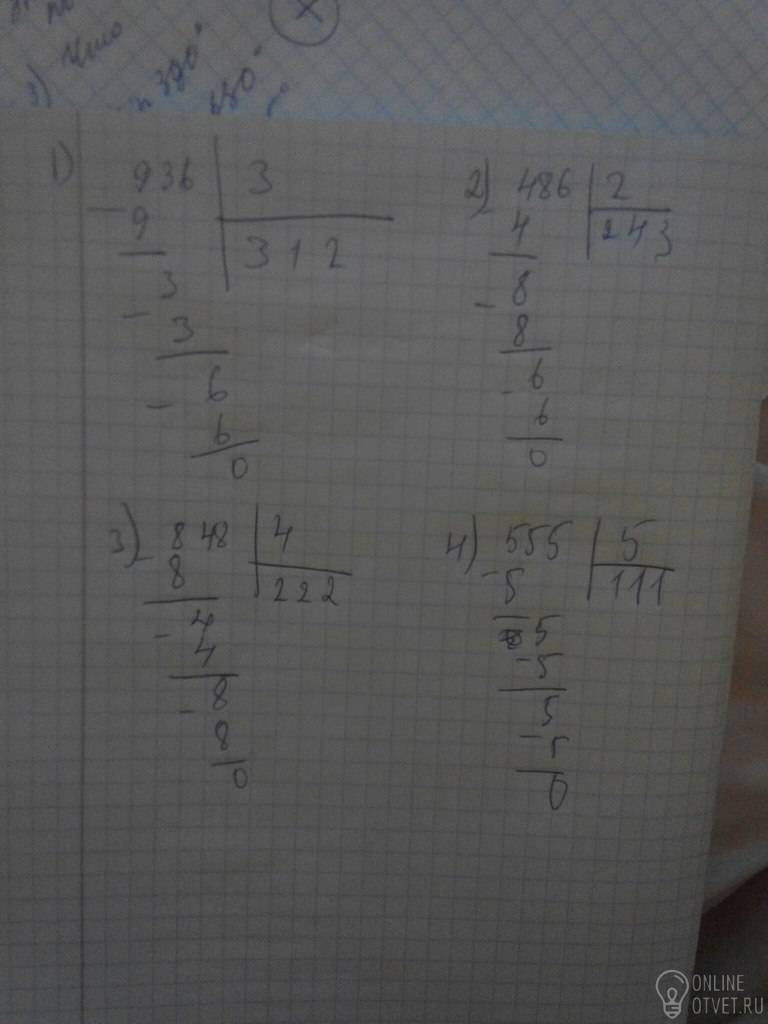 3)
380°
1) 936 | 3
- 9 | 312
3
- 3
6
- 6
0
2) 486 | 2
- 4 | 243
8
- 8
6
- 6
0
3) 848 | 4
- 8 | 222
4
- 4
8
- 8
0
4) 555 | 5
- 5 | 111
5
- 5
5
- 5
0
ONLINE
OTVET.RU